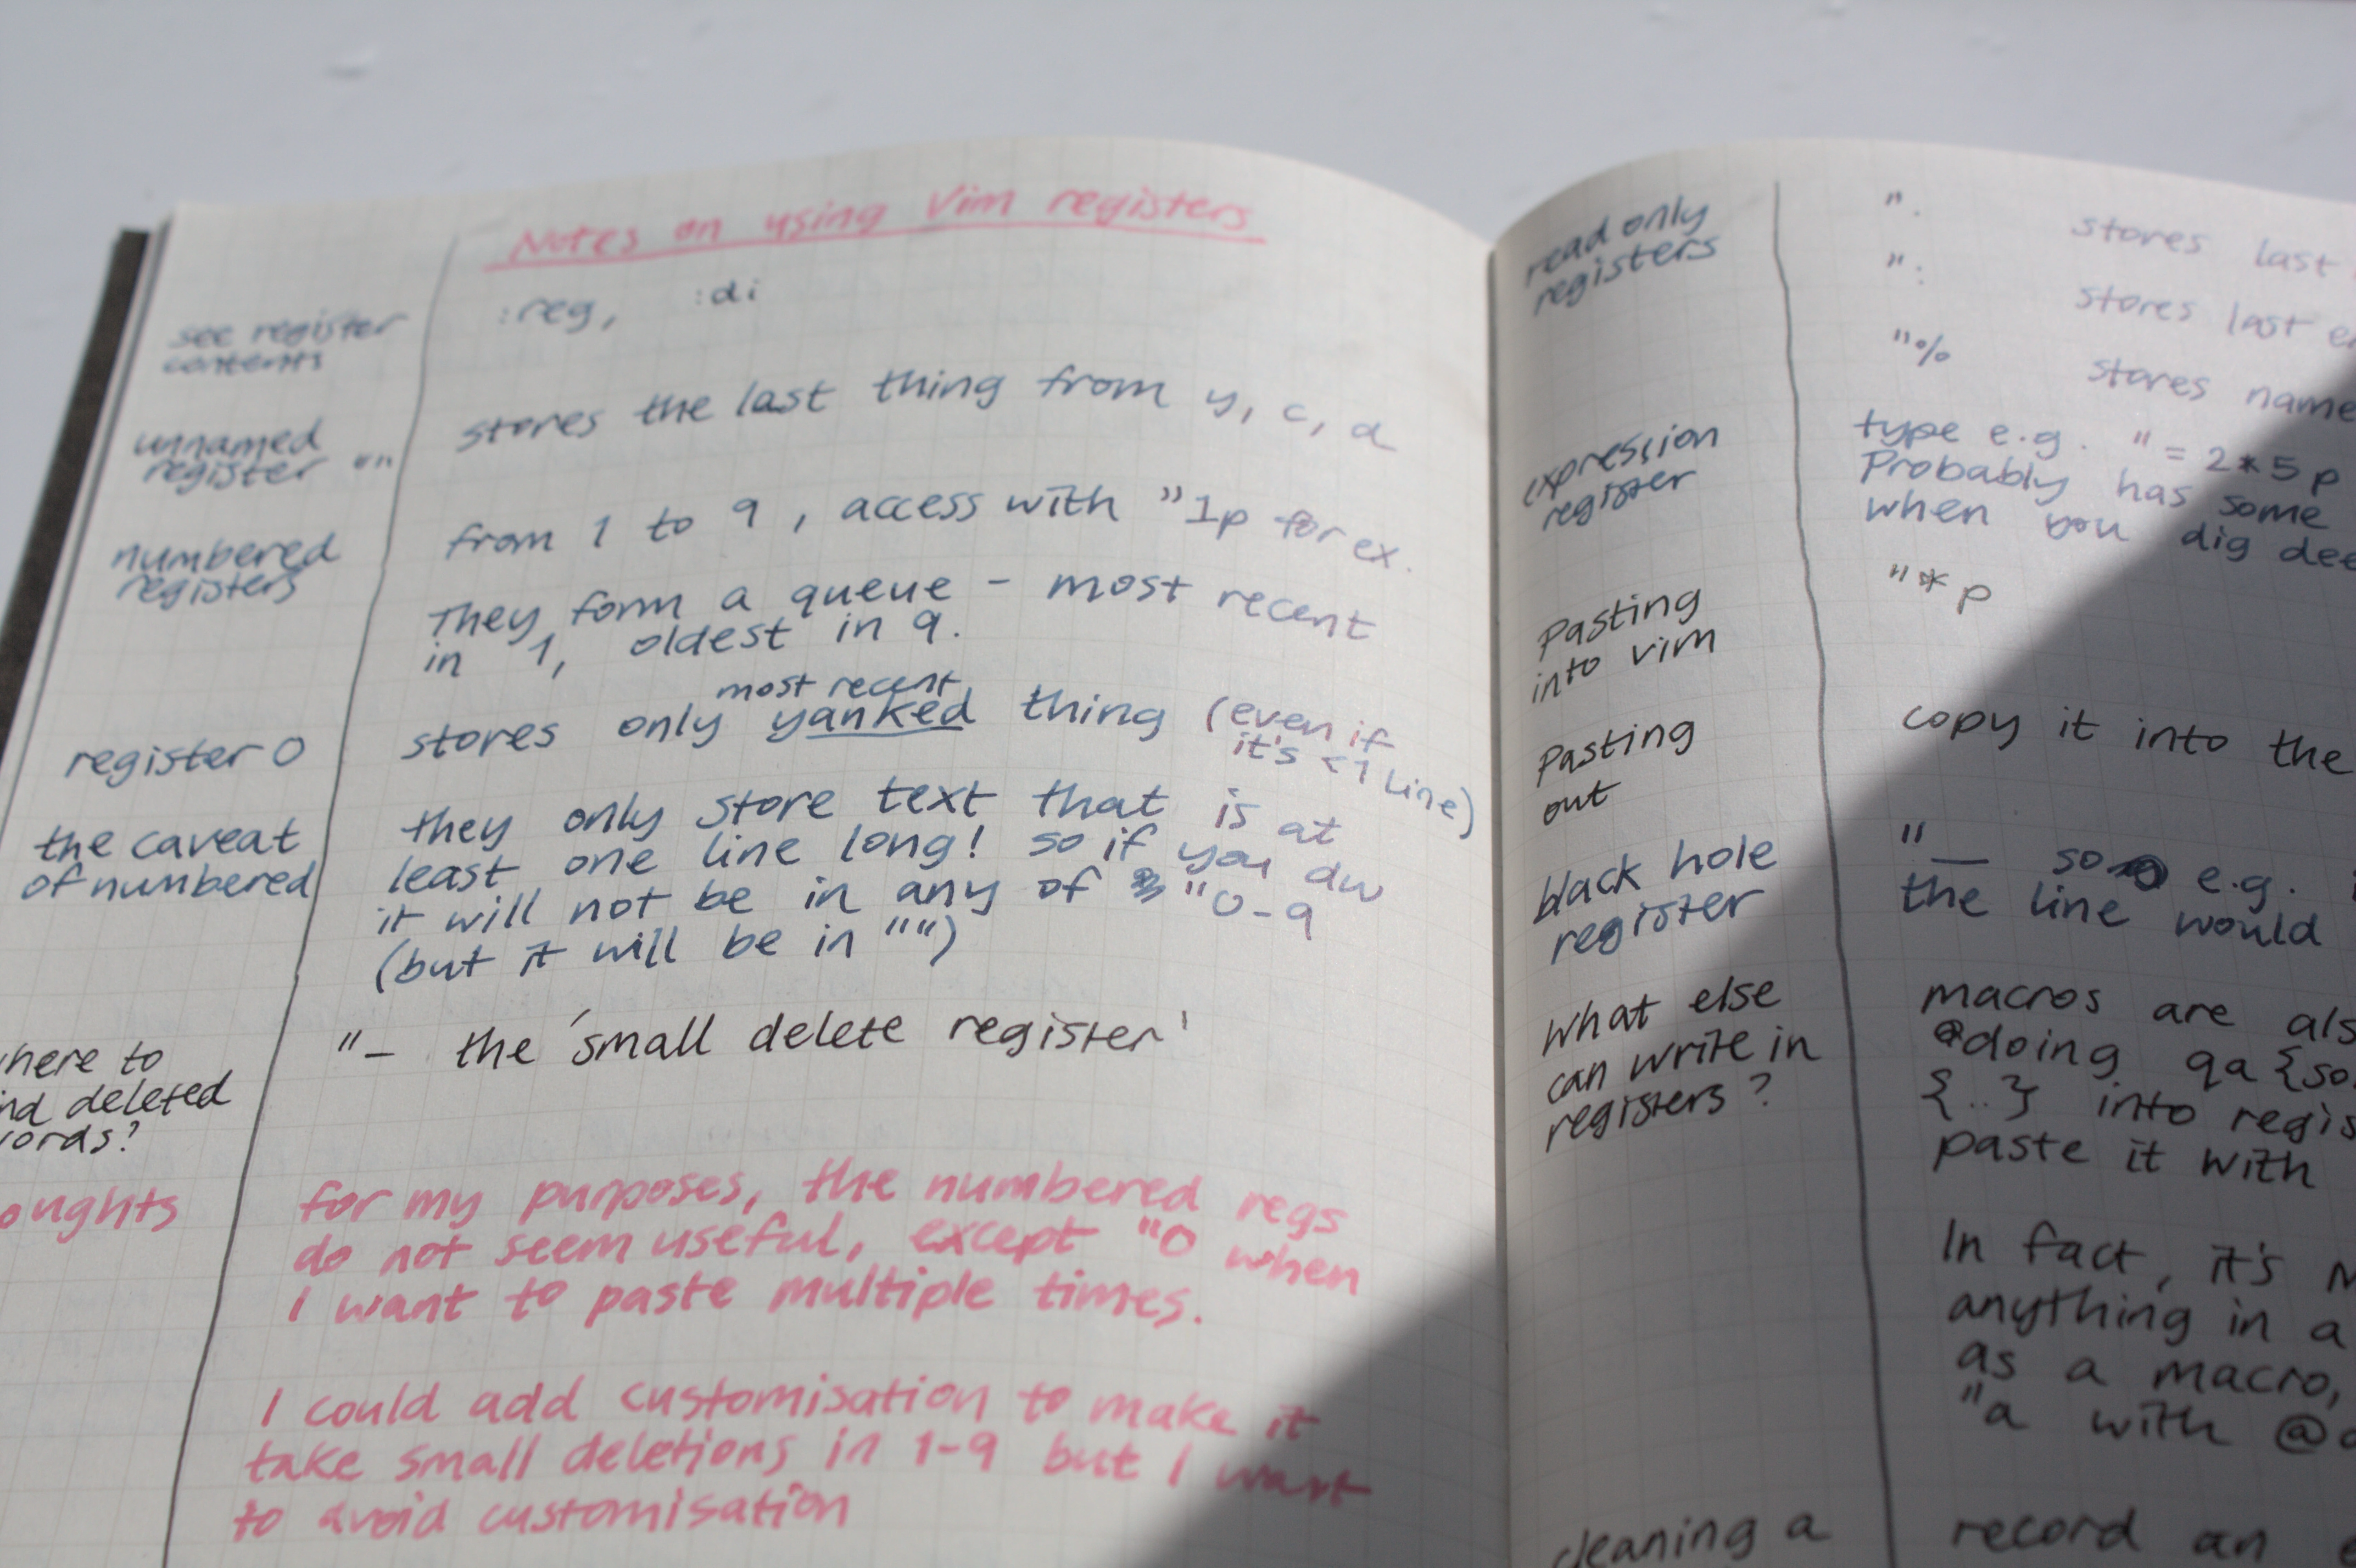 Notes on using Vim registers
see register
contents
:reg, :di
unnamed
register ""
stores the last thing from y, c, d
numbered
registers
from 1 to 9, access with "1p for ex.
They form a queue - most recent
in 1, oldest in 9.
register 0
most recent
stores only yanked thing (even if
it's <1 line)
the caveat
of numbered
they only store text that is at
least one line long! so if you dw
it will not be in any of "0-9
(but it will be in "")
here to
nd deleted
ords?
"- the 'small delete register'
oughts
for my purposes, the numbered regs
do not seem useful, except "0 when
I want to paste multiple times.
I could add customisation to make it
take small deletions in 1-9 but I want
to avoid customisation
read only
registers
". stores last
": stores last e
"% stores name
expression
register
type e.g. "=2*5p
Probably has some
when you dig dee
Pasting
into vim
"*p
Pasting
out
copy it into the
black hole
register
"_ so e.g.
the line would
What else
can write in
registers?
macros are als
doing qa{so
{..} into regis
paste it with
In fact, it's
anything in a
as a macro,
"a with @
cleaning a
record an